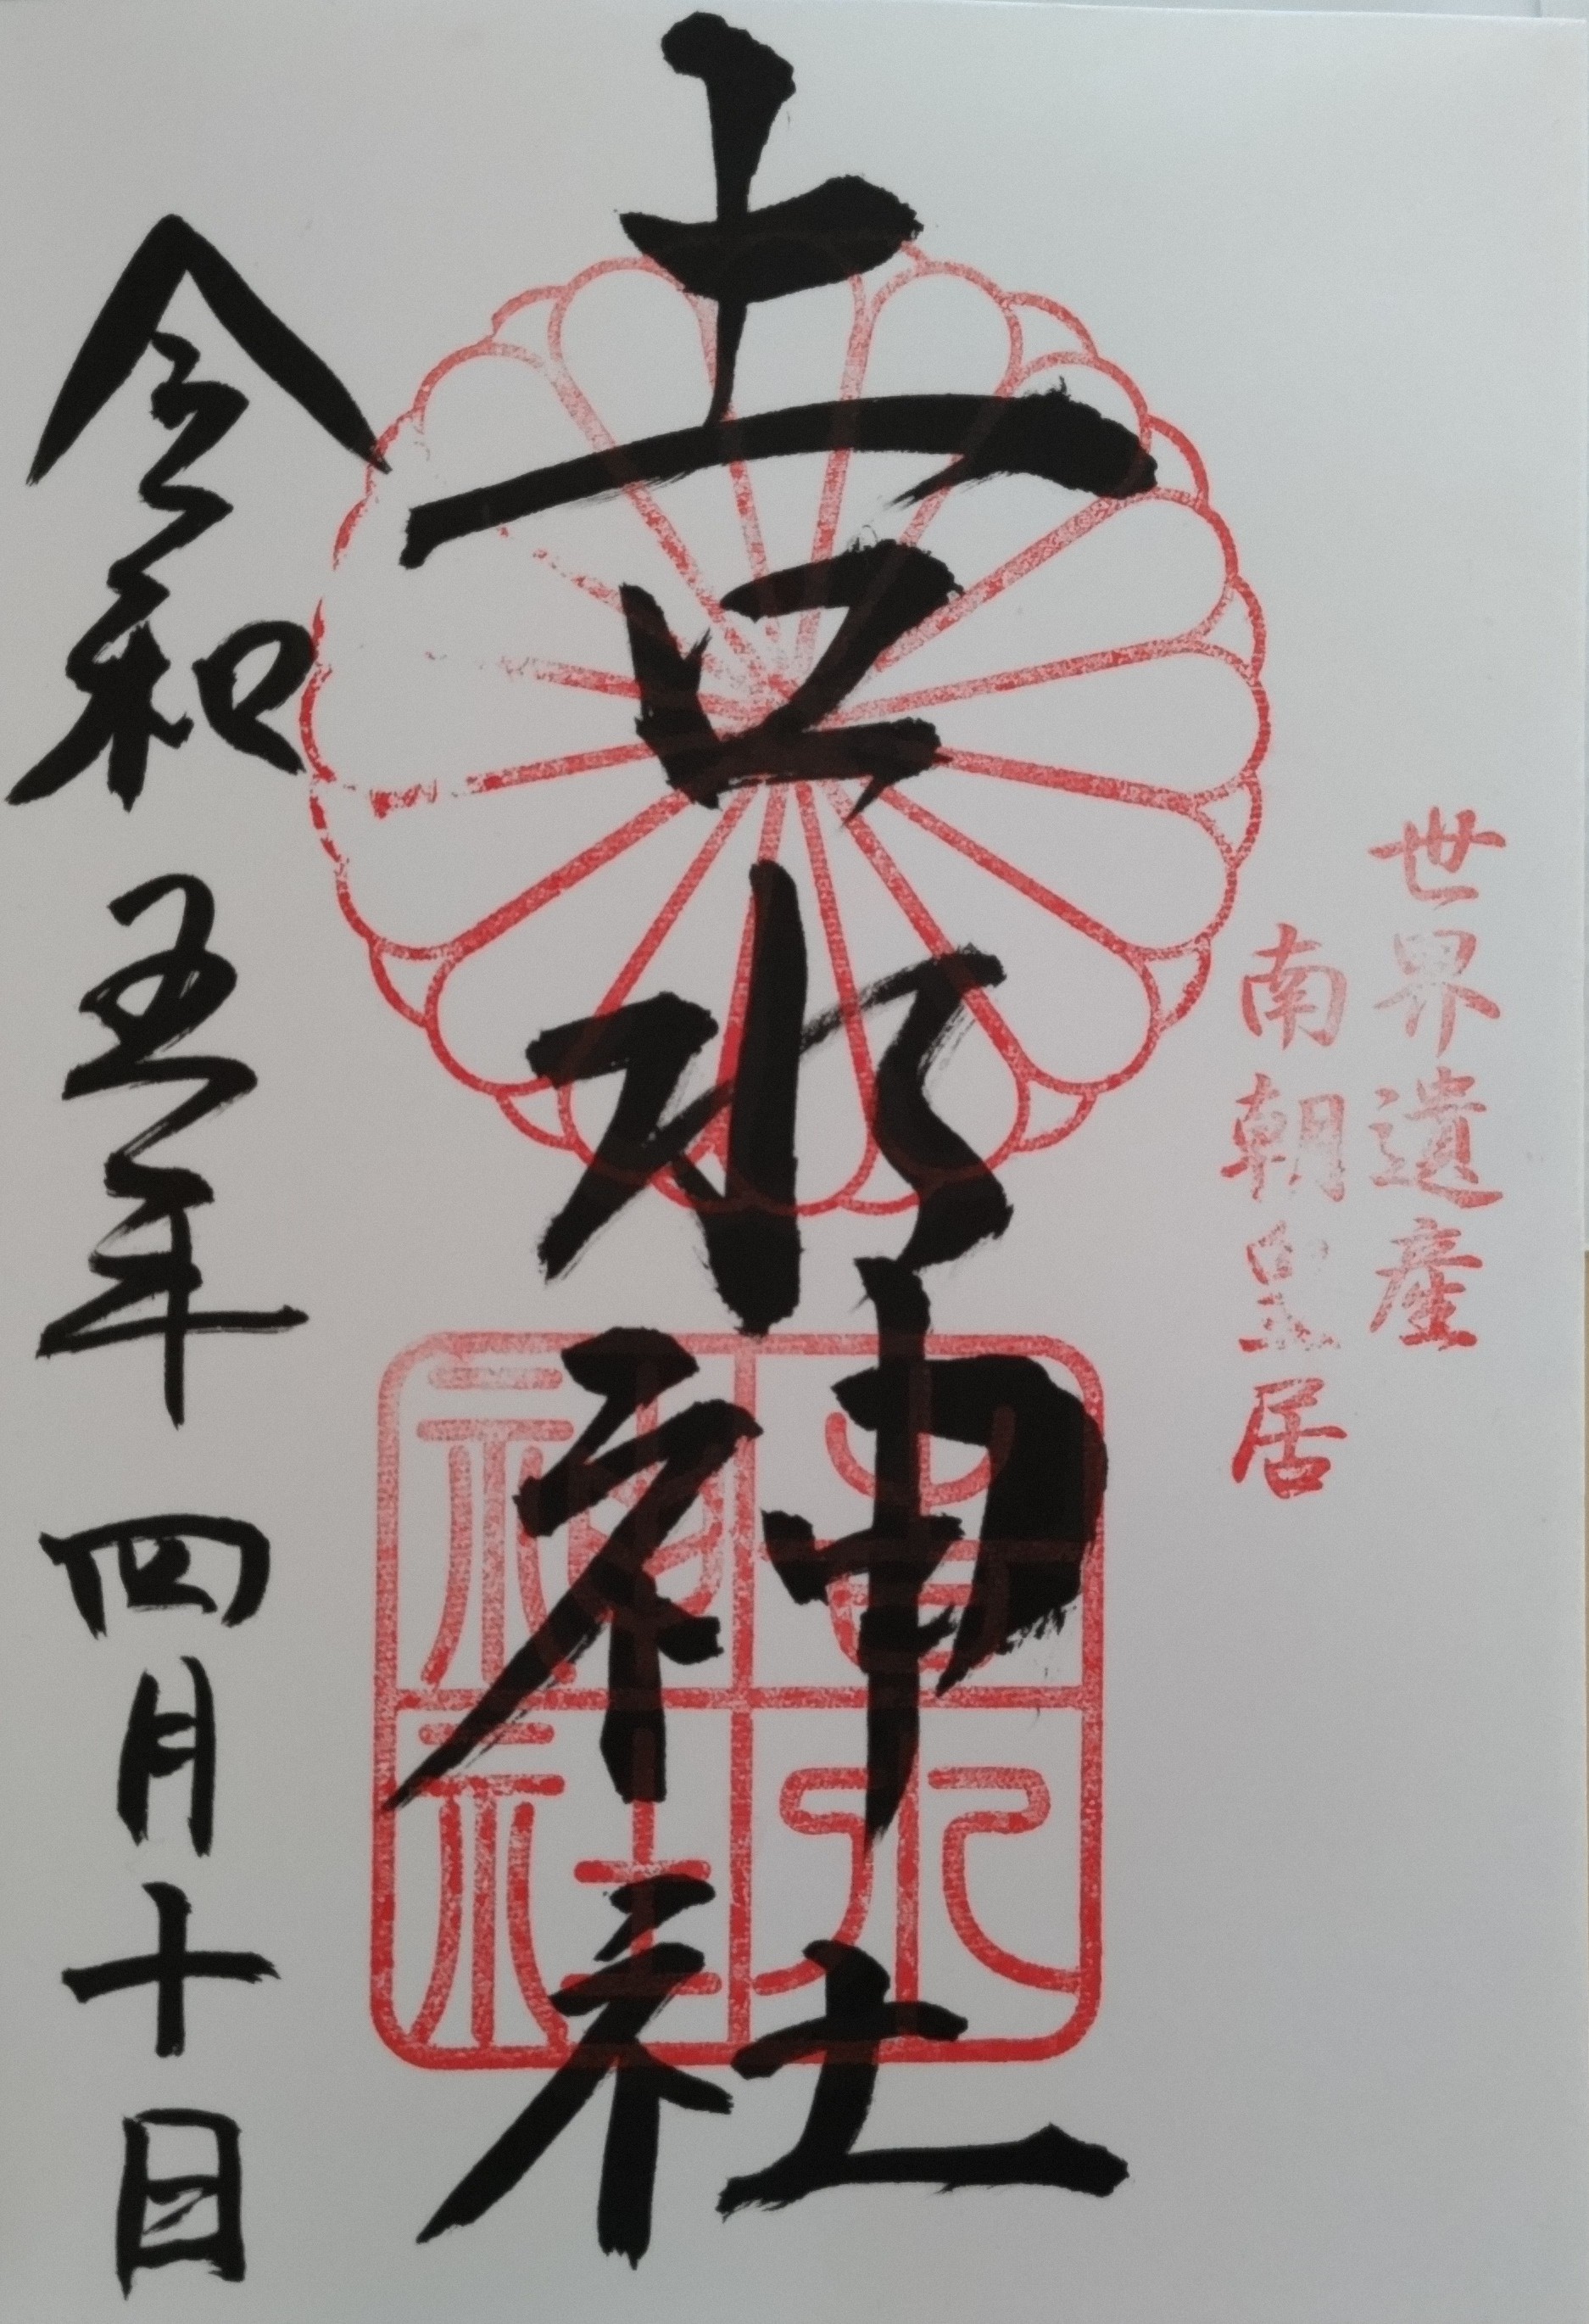 世界遺産
南朝皇居
𠮷水神社
吉水神社
令和五年四月十日